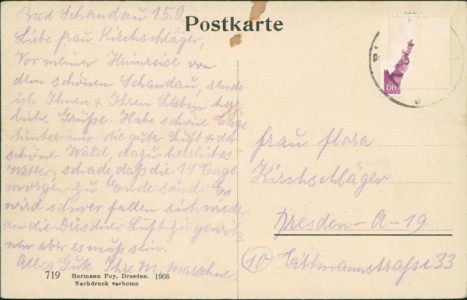 Bad Schandau 15.9.
Postkarte
Liebe Frau Kirchschläger,
Vor meiner Heimreise von
dem schönen Schandau, sende
ich Ihnen & Ihren Lieben herz
liche Grüße. Habe schöne Tage
hinter mir die gute Luft & der
schöne Wald, dazu herrliches
Wetter, schade, daß die 14 Tage
morgen zu Ende sind. Es
wird schwer fallen sich wieder
an die Dresdner Luft zu gewöh
nen aber es muß sein.
Alles Gute Ihre M.
719 Hermann Poy, Dresden. 1908
Nachdruck verboten
Frau Flora
Kirchschläger
Dresden-A-19
10 33